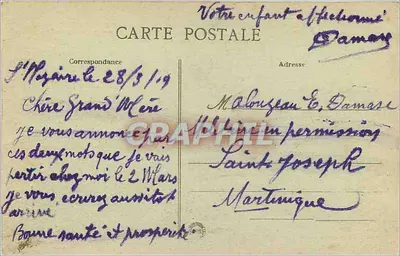 Votre enfant affectionné
Damase
CARTE POSTALE
Correspondance
Adresse
St Nazaire le 28/3/19
Chère Grand Mère
je vous annonce par
ces deux mots que je vais
partir chez moi le 2 Mars
je vous écrirez aussitot
arrivé
Bonne santé et prosperité
M Alouzeau E, Damase
en permission
Saint Joseph
Martinique
CPAPHIL